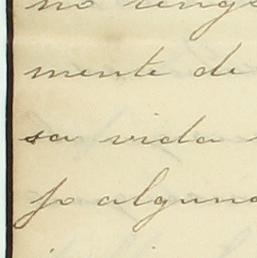 no teng
mente de
sa vida
jo alguna